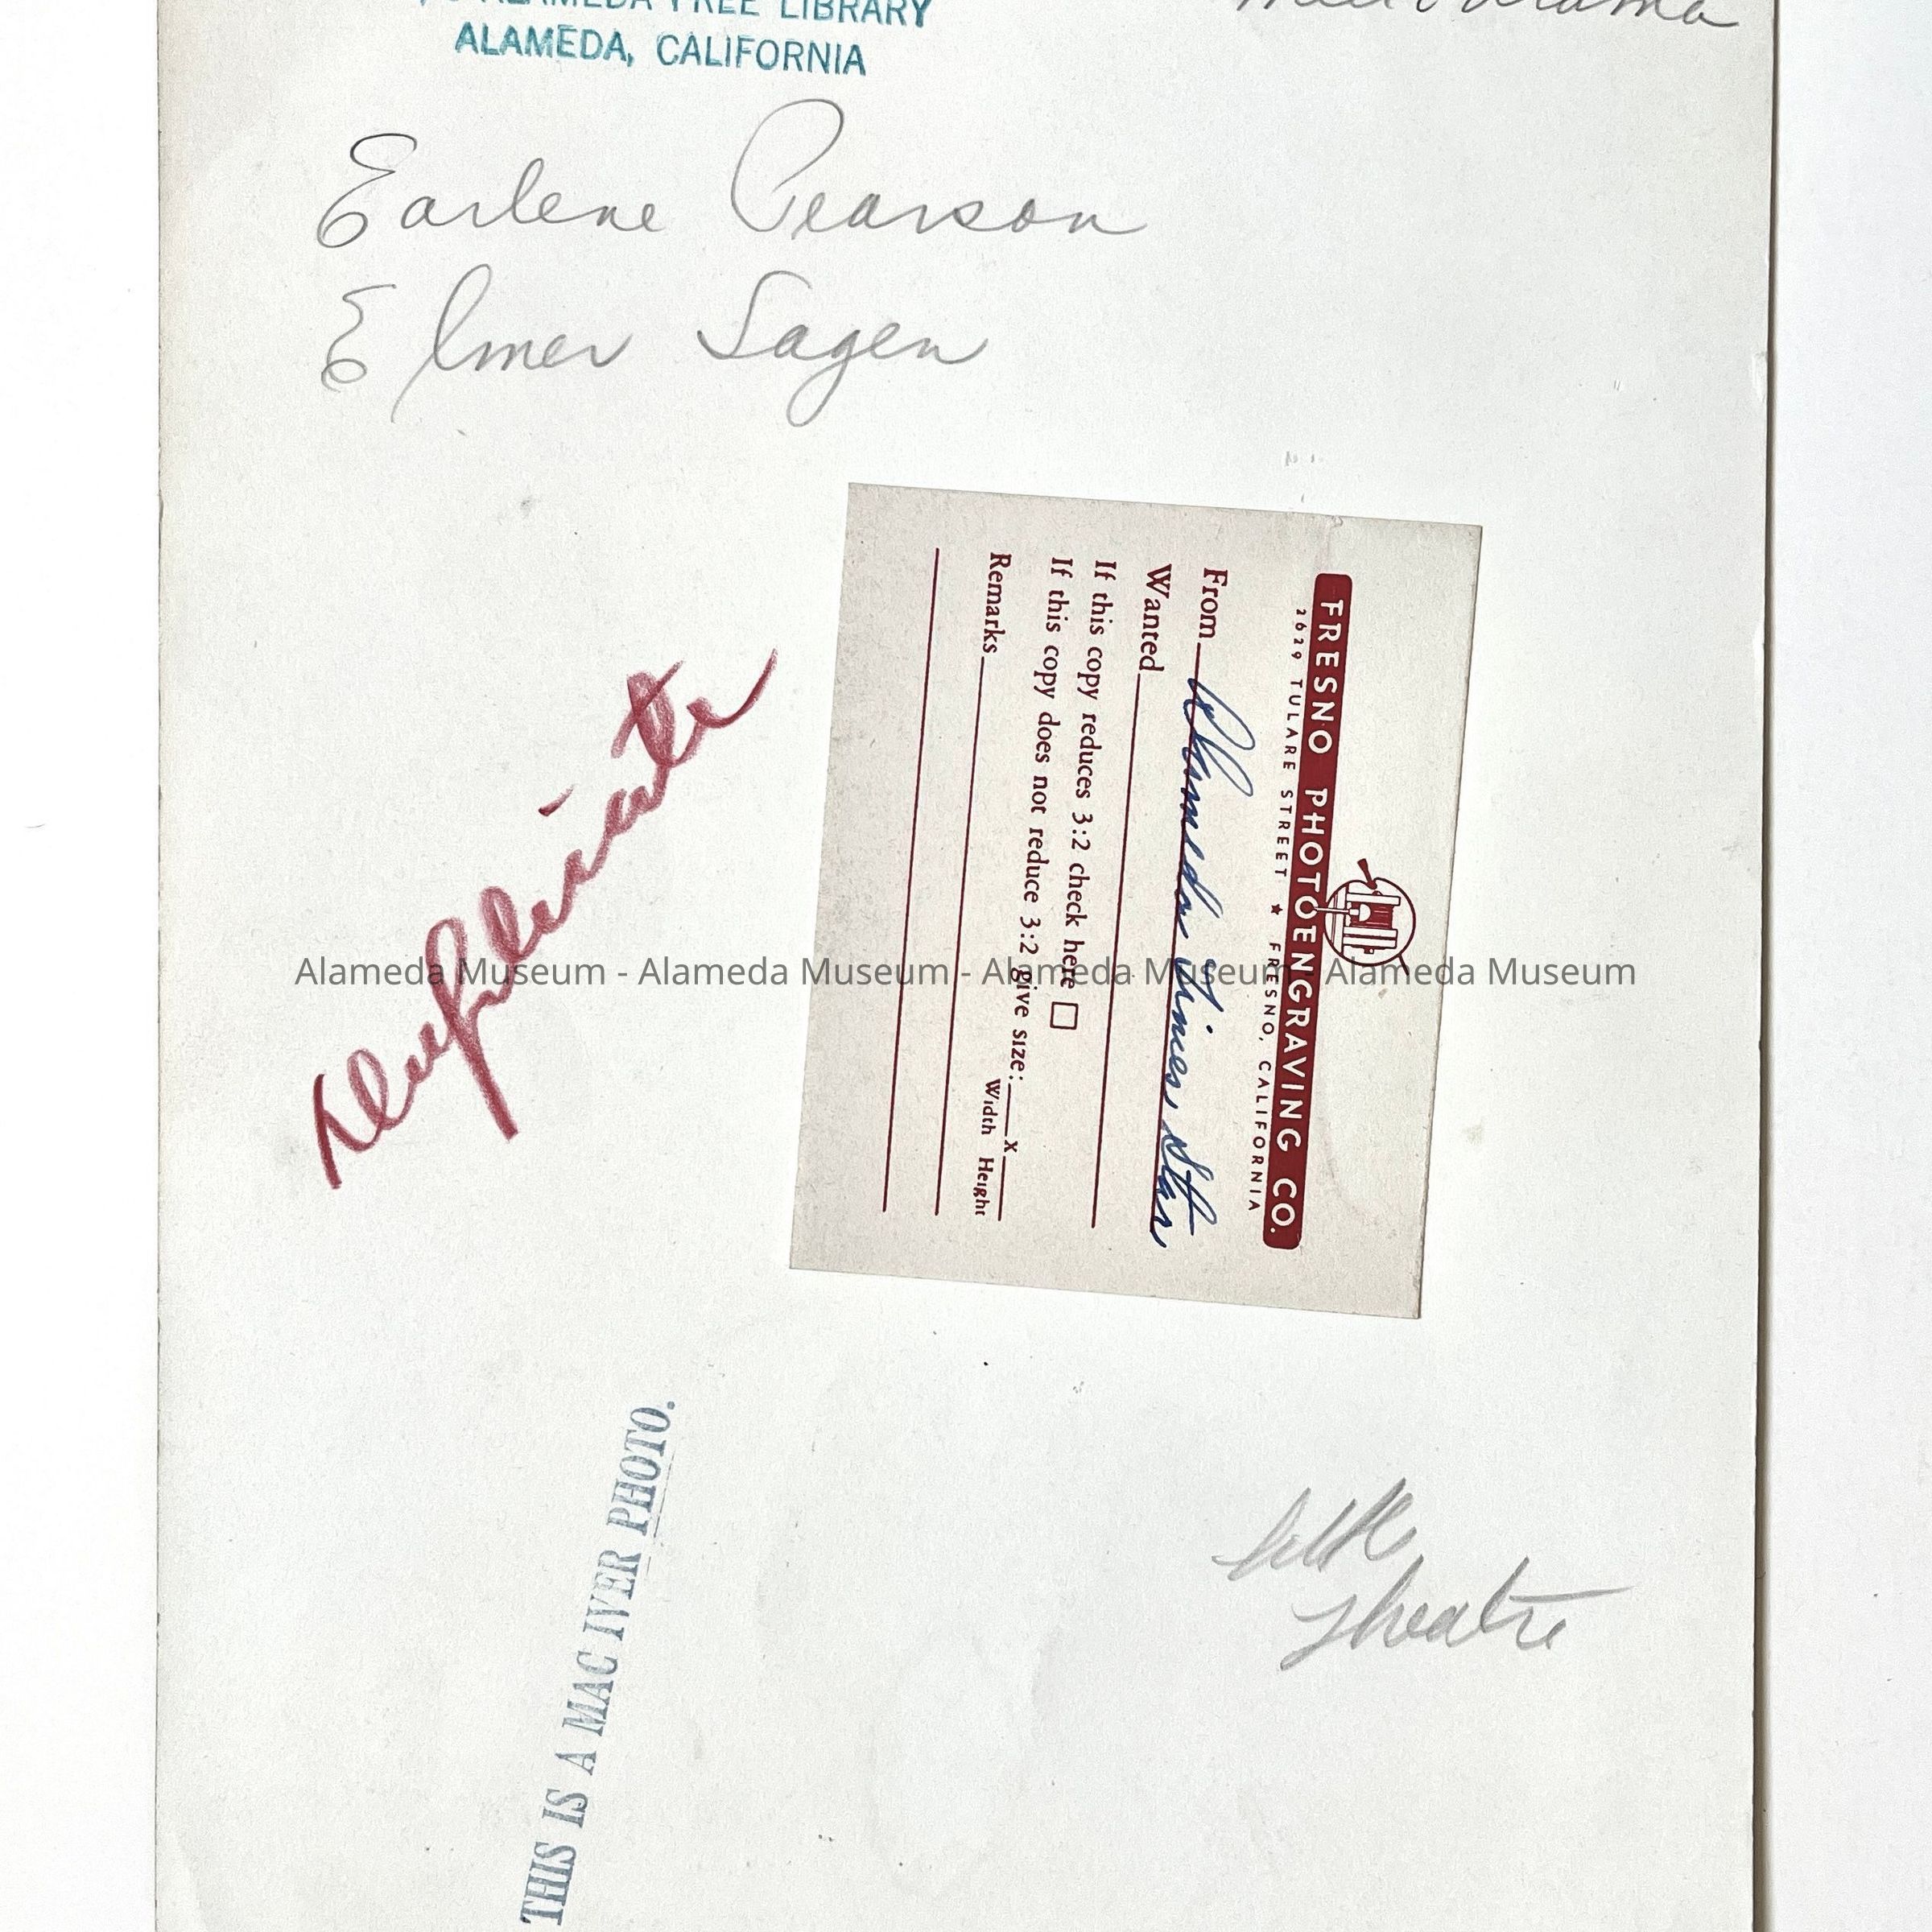 ALAMEDA FREE LIBRARY
ALAMEDA, CALIFORNIA
Earlene Pearson
Elmer Sagen
FRESNO PHOTOENGRAVING CO.
2629 TULARE STREET ★ FRESNO, CALIFORNIA
From Alameda Times Star
Wanted
If this copy reduces 3:2 check here □
If this copy does not reduce 3:2 give size: x
Width Height
Remarks
Duplicate
Alameda Museum - Alameda Museum - Alameda Museum - Alameda Museum
THIS IS A MAC IVER PHOTO.
Theatre